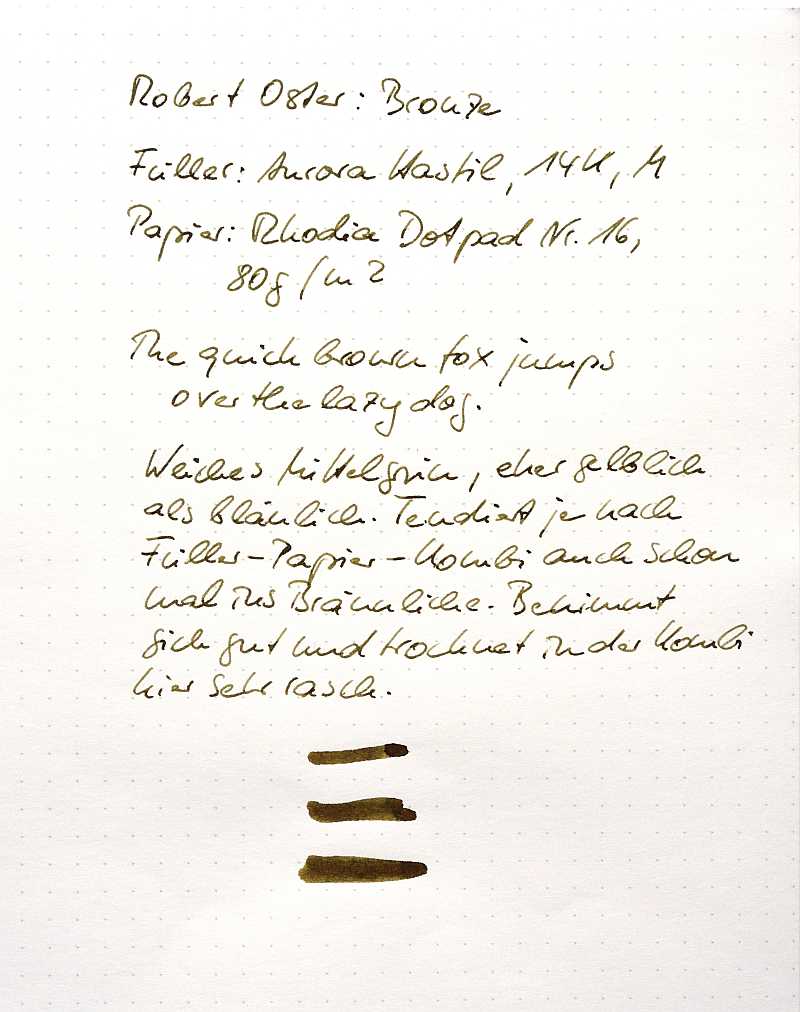 Robert Oster: Bronze
Füller: Aurora Hastil, 14K, M
Papier: Rhodia Dotpad Nr. 16,
80g/m2
The quick brown fox jumps
over the lazy dog.
Weiches Mittelgrün, eher gelblich
als bläulich. Tendiert je nach
Füller-Papier-Kombi auch schon
mal ins Bräunliche. Benimmt
sich gut und trocknet in der Kombi
hier sehr rasch.